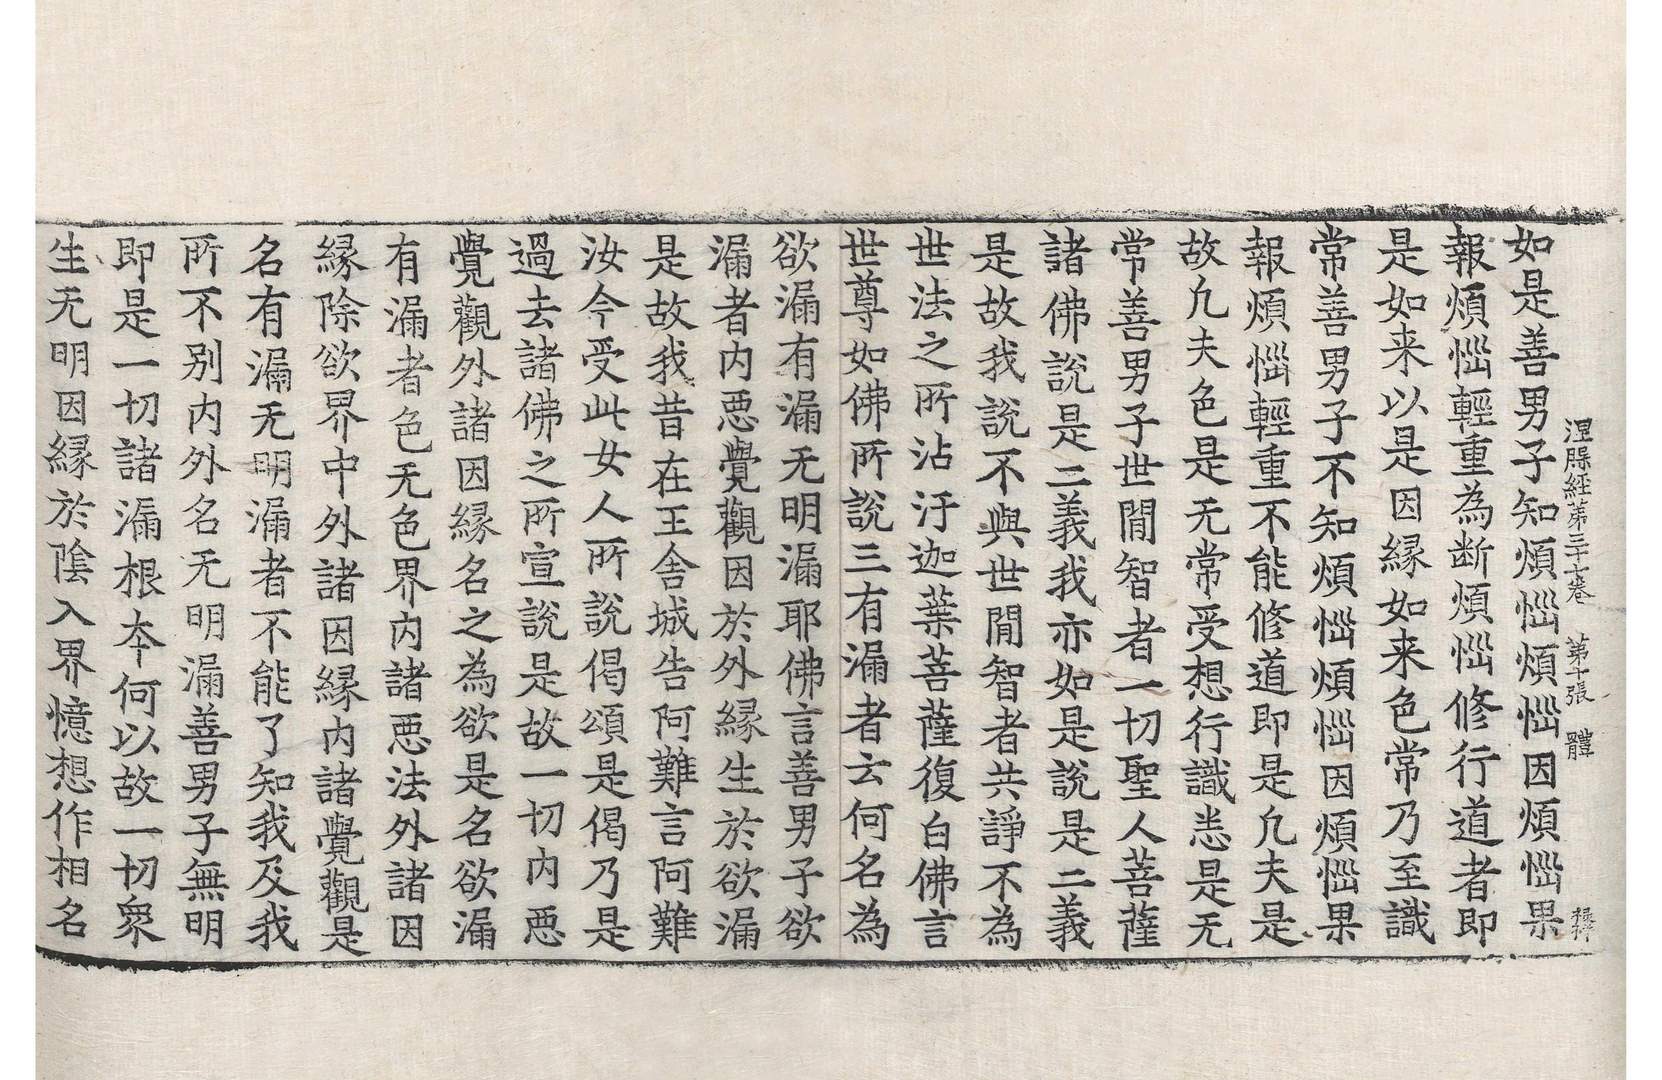 涅槃経第三十七卷 第十張 體
如是善男子知煩惱煩惱因煩惱果
報煩惱輕重為断煩惱修行道者即
是如来以是因縁如来色常乃至識
常善男子不知煩惱煩惱因煩惱果
報煩惱輕重不能修道即是凢夫是
故凢夫色是无常受想行識悉是无
常善男子世間智者一切聖人菩薩
諸佛說是二義我亦如是說是二義
是故我說不與世間智者共諍不為
世法之所沾汙迦葉菩薩復白佛言
世尊如佛所說三有漏者云何名為
欲漏有漏无明漏耶佛言善男子欲
漏者内惡覺觀因於外縁生於欲漏
是故我昔在王舍城告阿難言阿難
汝今受此女人所說偈頌是偈乃是
過去諸佛之所宣說是故一切内惡
覺觀外諸因縁名之為欲是名欲漏
有漏者色无色界内諸惡法外諸因
縁除欲界中外諸因縁内諸覺觀是
名有漏无明漏者不能了知我及我
所不别内外名无明漏善男子無明
即是一切諸漏根夲何以故一切衆
生无明因縁於陰入界憶想作相名